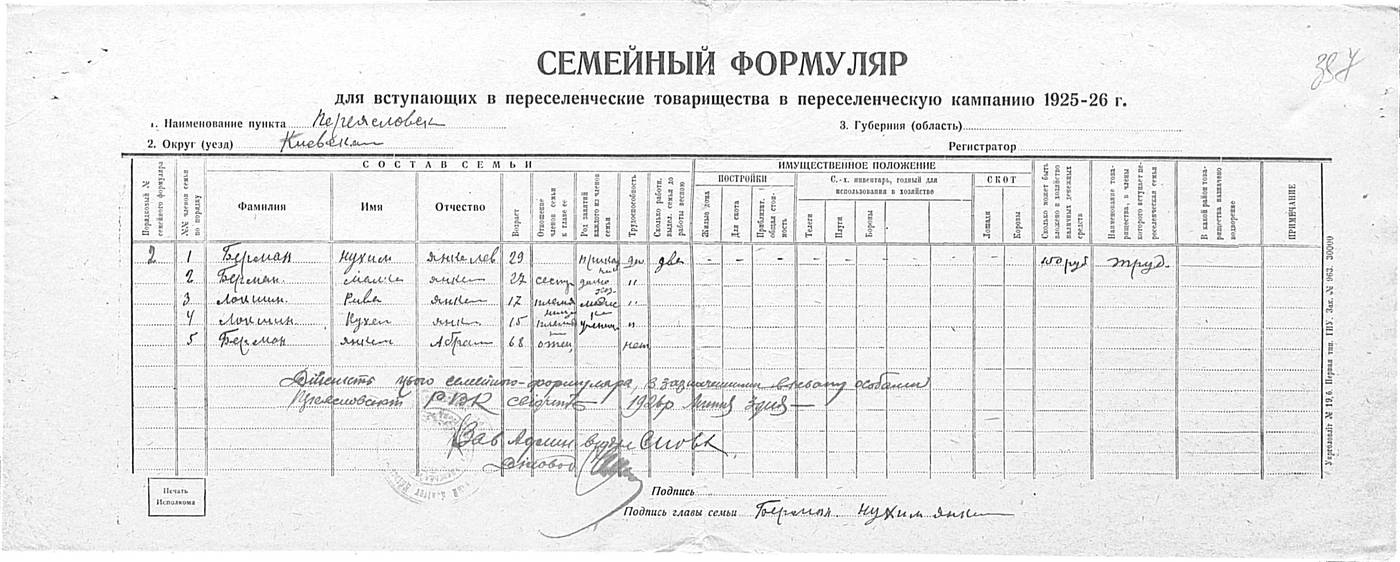 СЕМЕЙНЫЙ ФОРМУЛЯР
387
для вступающих в переселенческие товарищества в переселенческую кампанию 1925-26 г.
1. Наименование пункта Переясловск
3. Губерния (область)
2. Округ (уезд) Киевская
Регистратор
СОСТАВ СЕМЬИ
ИМУЩЕСТВЕННОЕ ПОЛОЖЕНИЕ
ПОСТРОЙКИ
С.-х. инвентарь, годный для использования в хозяйстве
СКОТ
Порядковый № семейного формуляра
№№ членов семьи по порядку
Фамилия
Имя
Отчество
Возраст
Отношение членов семьи к главе ее
Род занятий каждого из членов семьи
Трудоспособность
Сколько работн. выдел. семья до работы весною
Жилые дома
Для скота
Приблизит. общая стоимость
Телеги
Плуги
Бороны
Лошади
Коровы
Сколько может быть вложено в хозяйство наличных денежных средств
Наименование товарищества, в члены которого вступает переселенческая семья
В какой район товарищества назначено водворение
ПРИМЕЧАНИЕ
2 1 Берман Нухим Янкелев 29 да два - - - - - - - - - - - 150 руб труд.
2 Берман Янкел 27 сестр "
3 Локшин Рива Янкел 17 племя "
4 Локшин Янкел 15 племя "
5 Берман Янкел Абрам 68 отец нет
цього семейного-формуляра, з зазначеними в ньому особами
Р.В.К свідчить 1926р Липня 3 дня
Зав Админ
Діловод
Печать Исполкома
Подпись
Подпись главы семьи Берман Нухим Янкел
Укрглавліт № 19,6. Первая тип. ГПУ. Зак. № 963. 30000